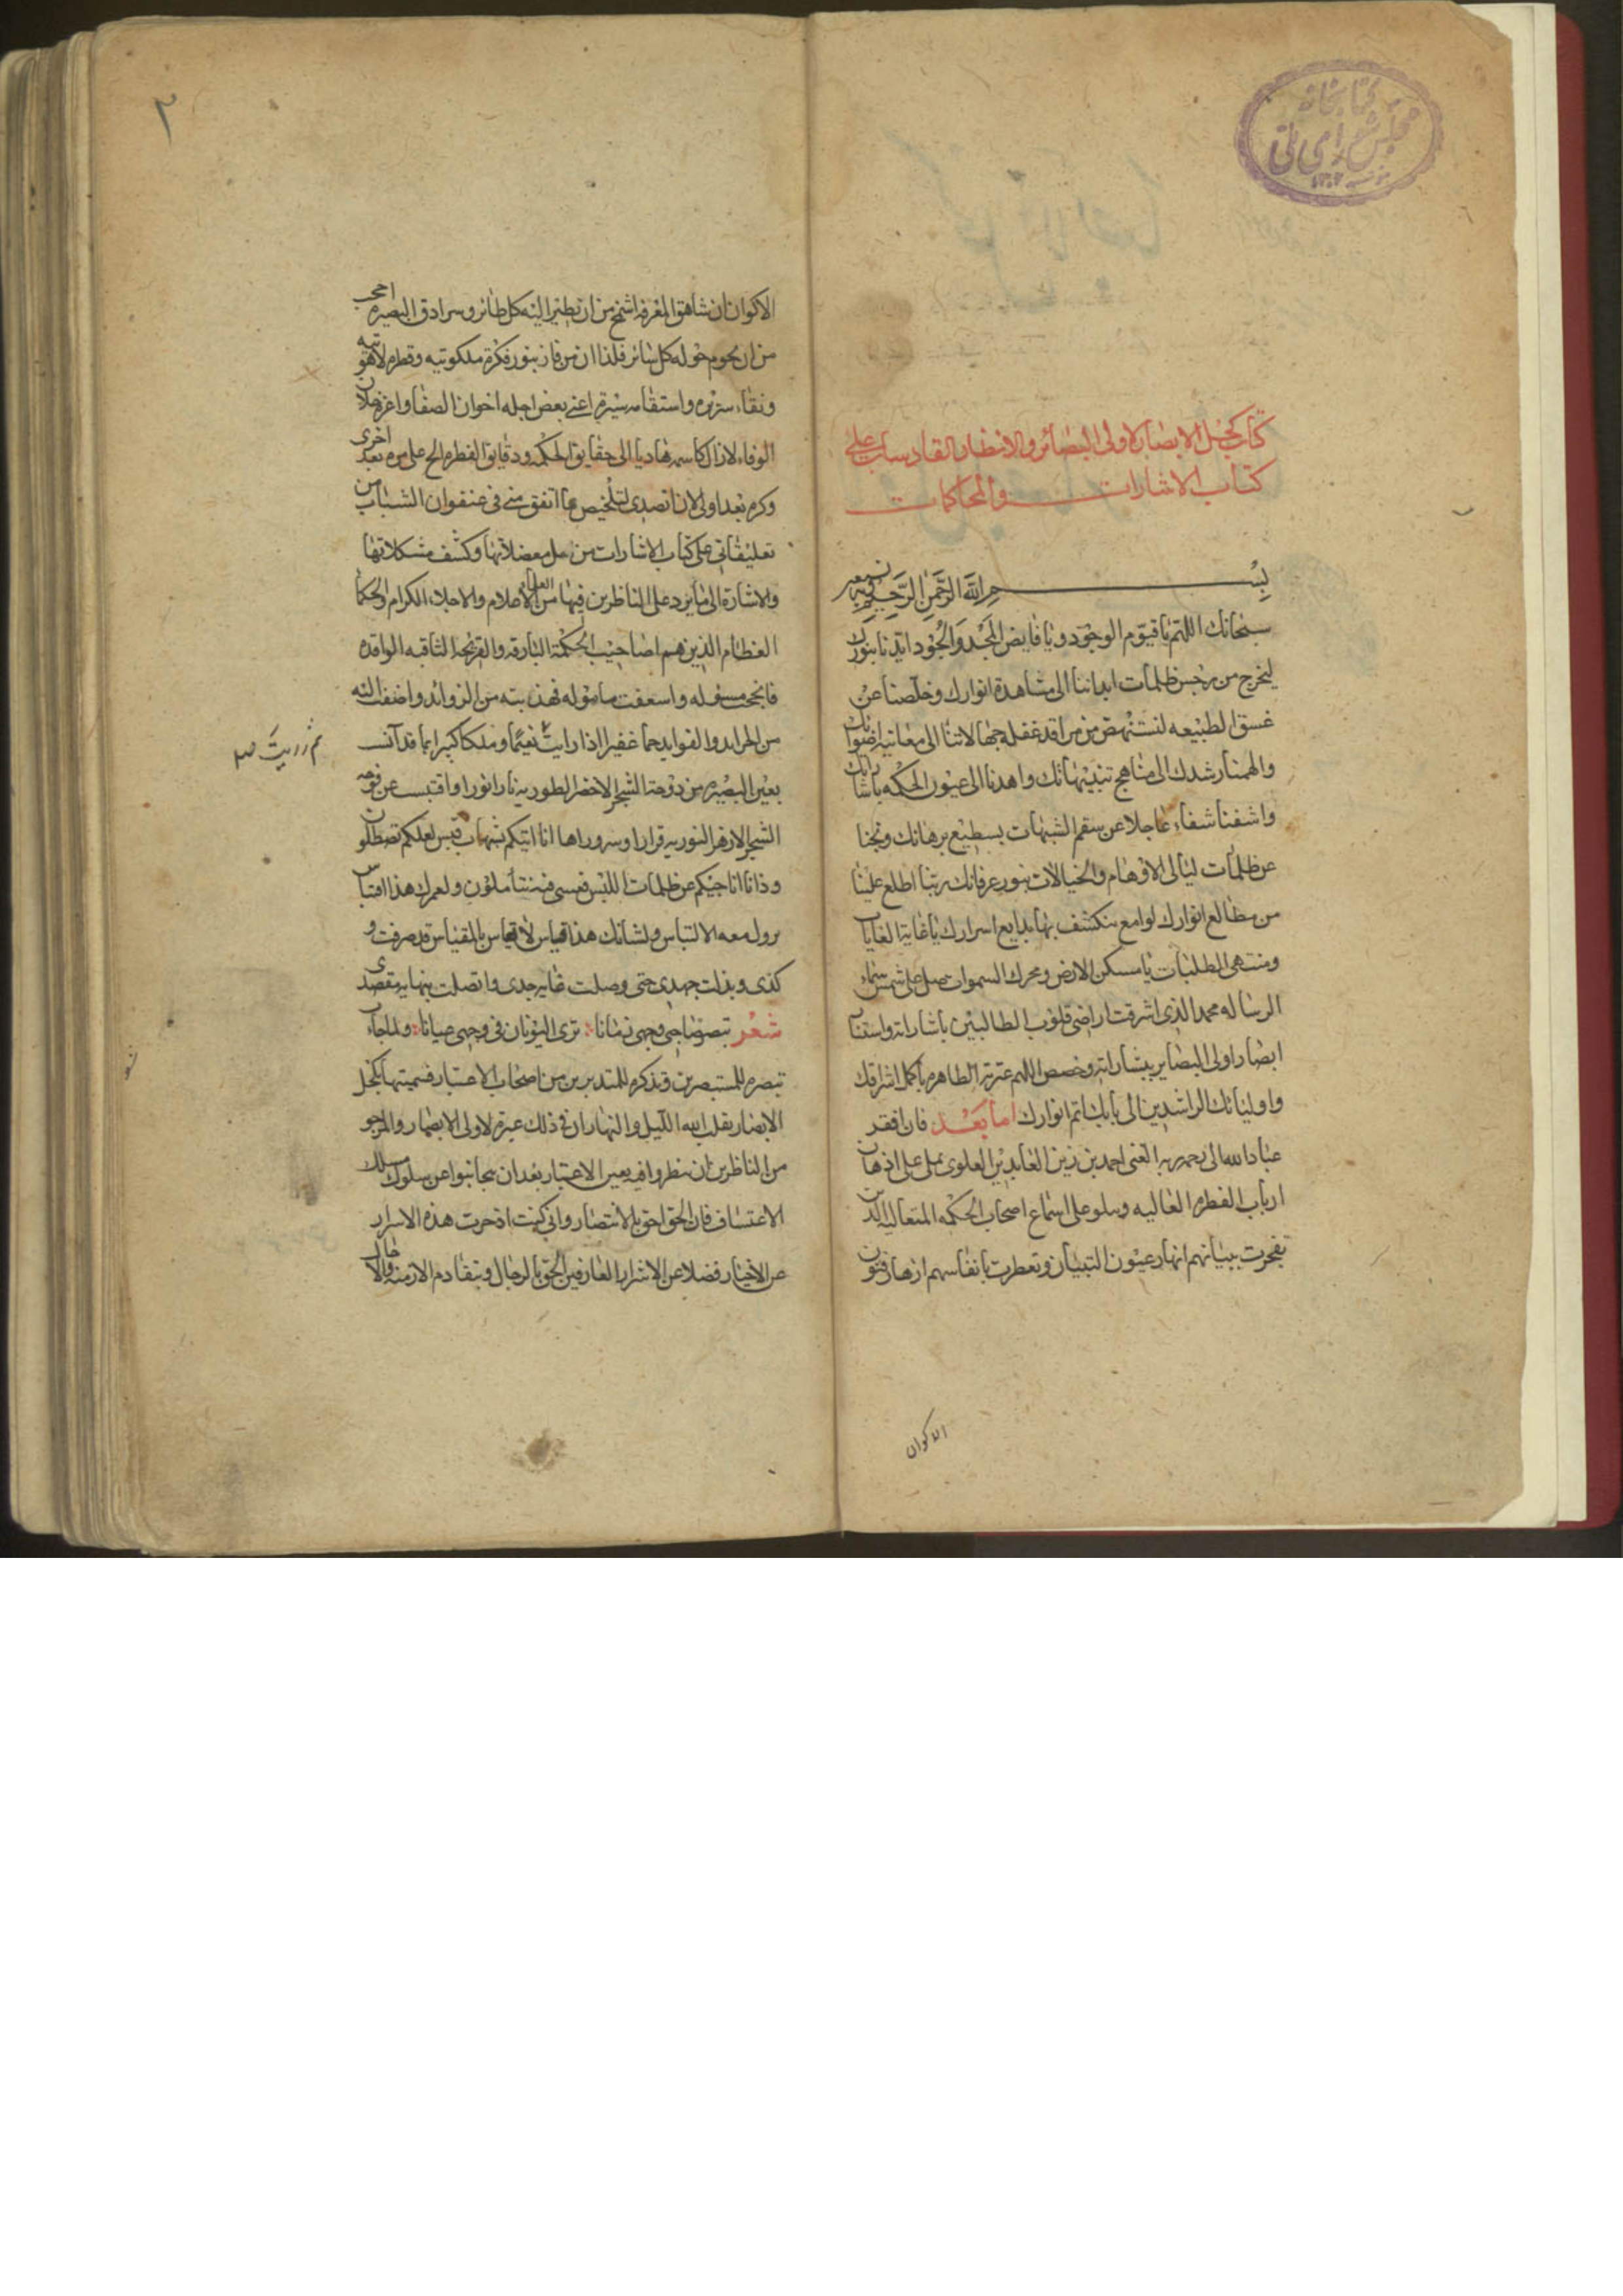 كتابخانهٔ
مجلس شورای ملی
كتاب كحل الابصار لاولى البصائر والانظار القادسات على
كتاب الاشارات والمحاكمات
بسم الله الرحمن الرحيم
سبحانك اللهم يا قيوم الوجود ويا فايض المجد والجود ايدنا بنورك
ليخرج من ظلمات ابداننا الى مشاهدة انوارك وخلصنا عن
غسق الطبيعه لنستنهض من مراقد غفله جهالاتنا الى معانيه
والهمنا رشدك الى مناهج تنبيهاتك واهدنا الى عيون الحكمه
واشفنا شفاء عاجلا عن سقم الشبهات بسطيع برهانك ونجنا
عن ظلمات ليالى الاوهام والخيالات بنور عرفانك ربنا اطلع علينا
من مطالع انوارك لوامع ينكشف بها بدايع اسرارك يا غاية الغايات
ومنتهى الطلبات يا مسكن الارض ومحرك السموات صل على شمس سماء
الرساله محمد الذى اشرقت اراضى قلوب الطالبين باشاراته
ابصار اولى البصاير ببشاراته وخصص اللهم عترته الطاهره باكمل اشراقك
واوليائك الراشدين الى بابك باتم انوارك اما بعد فان افقر
عباد الله الى رحمة ربه الغنى احمد بن زين العابدين العلوى يملى على اذهان
ارباب الفطره العاليه ويتلو على اسماع اصحاب الحكمه المتعاليه الذين
تفجرت ببيانهم انهار عيون التبيان وتعطرت بانفاسهم ازهار فنون
الاكوان
٢
الاكوان ان شاهق المعرفه اشمخ من ان يطير اليه كل طائر وسرادق البصيره احجب
من ان يحوم حوله كل سائر فلذا ان من فاز بنور فكرة ملكوتيه وفطرة لاهوتيه
ونقاء سريره واستقامه سيرة اعنى بعض اجله اخوان الصفا واعزه خلان
الوفاء لازال كاسمه هاديا الى حقايق الحكمه ودقايق الفطره الح على مره بعد اخرى
وكره بعد اولى لان اتصدى لتلخيص ما اتفق منى فى عنفوان الشباب من
تعليقاتى على كتاب الاشارات من حل معضلاتها وكشف مشكلاتها
والاشارة الى ما يرد على الناظرين فيها من العلماء الاعلام والاجلاء الكرام والحكماء
العظام الذين هم اصاحيب الحكمة البارقه والقريحه الثاقبه الواقده
فانجحت مسئوله واسعفت مأموله فهذبته من الزوائد واضفت اليه
من الفرايد والفوايد جما غفيرا اذا رايت نعيما وملكا كبيرا بما قد آنست
ثم رايت صح
بعين البصيره من دوحة الشجر الاخضر الطوريه نارا نورا واقتبست عن
الشجر الازهر النوريه قرارا وسرورا ها انا اتيكم بشهاب قبس لعلكم تصطلون
وذا انا انا جيكم عن ظلمات اللبس فعسى فيه تتأملون ولعمرك هذا اقتباس
يزول معه الالتباس ولشانك هذا قياس لا يقاس بالمقياس قد صرفت
كدى وبذلت جهدى حتى وصلت غايه جدى واتصلت بنهايه مقصدى
شعر تبصر صاحبى وجهى زمانا ترى اليونان فى وجهى عيانا ولما جاءت
تبصره للمستبصرين وتذكره للمتدبرين من اصحاب الاعتبار فسميتها بكحل
الابصار يقلب الله الليل والنهار ان فى ذلك عبرة لاولى الابصار والمرجو
من الناظرين ان ينظروا فيه بعين الاعتبار بعد ان يجانبوا عن سلوك مسلك
الاعتساف فان الحق احق بالانتصار وانى كنت ادخرت هذه الاسرار
عن الاخيار فضلا عن الاشرار العارفين الحق بالرجال وتقادم الازمنه